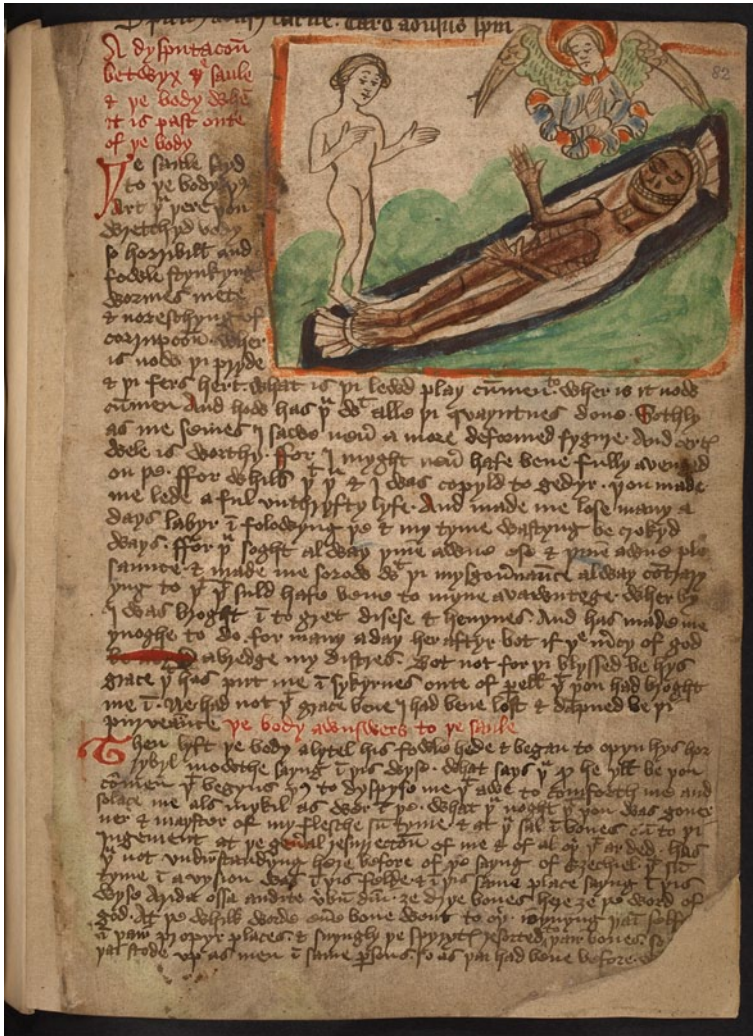 Caro aduersus spm
82
A dysputacoũ
betwyx yͤ saule
& ye body whē
it is past oute
of ye body
Ye saule sayd
to ye body
Art yͧ yere you
wretchyd
so horribill and
fowle stynkyng
wormes mete
& noreschyng of
corrupcoũ. Wher
is nowe yi pryde
& yi fers hert. What is yi lewd play cũmen to. Wher is it nowe
cũmen And how has yͧ wͭ alle yi quayntnes done. Sothly
as me semes I sawe neũ a more deformed fygure. And
wele is worthy. For I myght neũ hafe bene fully avenged
on ye. ffor whils yͭ yͧ & I was copyld to gedyr. you made
me lede a ful vnthryfty lyfe. And made me lose many a
days labyr ī folowyng ye & my tyme wastyng be crokyd
ways. ffor yͧ soght alway yine awne ese & yine awne ple
saunce. & made me sorow wͭ yi mysgouͬnaũce alway cõtrary
yng to yͭ yͧ suld hafe bene to myne avawntege. Wher by
I was broght ī to gret disese & heuynes. And has made me
ynoghe to do. for many a day her aftyr bot if yͤ mͨy of god
abredge my distres. Bot not for yi blyssed be hys
grace yͭ has put me ī sykyrnes oute of pell yͭ you had broght
me ī. Ne had not yͭ grace bene I had bene lost & dāpned be yi
purveaũce ye body awnswers to ye saule
Then lyft ye body alytel his fowle hede & began to opyn hys hor
rybyl mowthe sayng ī yis wyse. What says yͧ
cũmen yͭ begyns to dyspyse me yͭ awe to comforth me and
solace me als mykil as wer ī ye. What yͧ noght yͭ you was gouer
ner & mayster of my flesche sũ tyme. & at yͧ sal ī bones cũ to yi
iugement at ye geñal resurrectoñ of me & of al oyͬ yͭ ar ded. has
yͧ not vndirstandyng here before of ye sayng of Ezechiel. yͭ sũ
tyme ī a vysion was ī yis felde. & ī yis same place sayng ī yis
wyse Arida ossa audite ỽbũ dñi. ze drye bones here ze ye word of
god. At ye whilk worde bone went to oyͬ. ioynyng yai self
ī yair propyr places. & suyngly ye spyryt resorted to yair bones. so
yai stode vp as men ī same psons. so as yai had bene before.